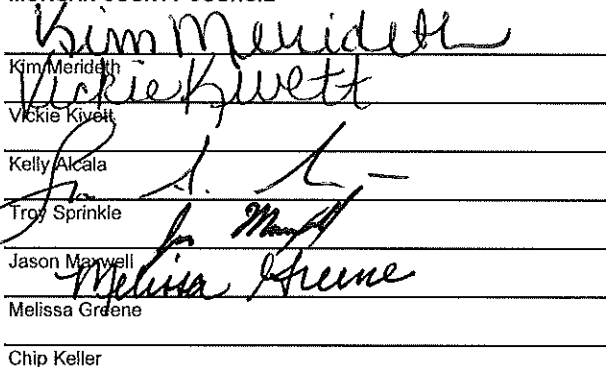 MORGAN COUNTY COUNCIL
Kim Merideth
Kim Merideth
Vickie Kivett
Vickie Kivett
Kelly Alcala
Troy Sprinkle
Jason Maxwell
Melissa Greene
Melissa Greene
Chip Keller